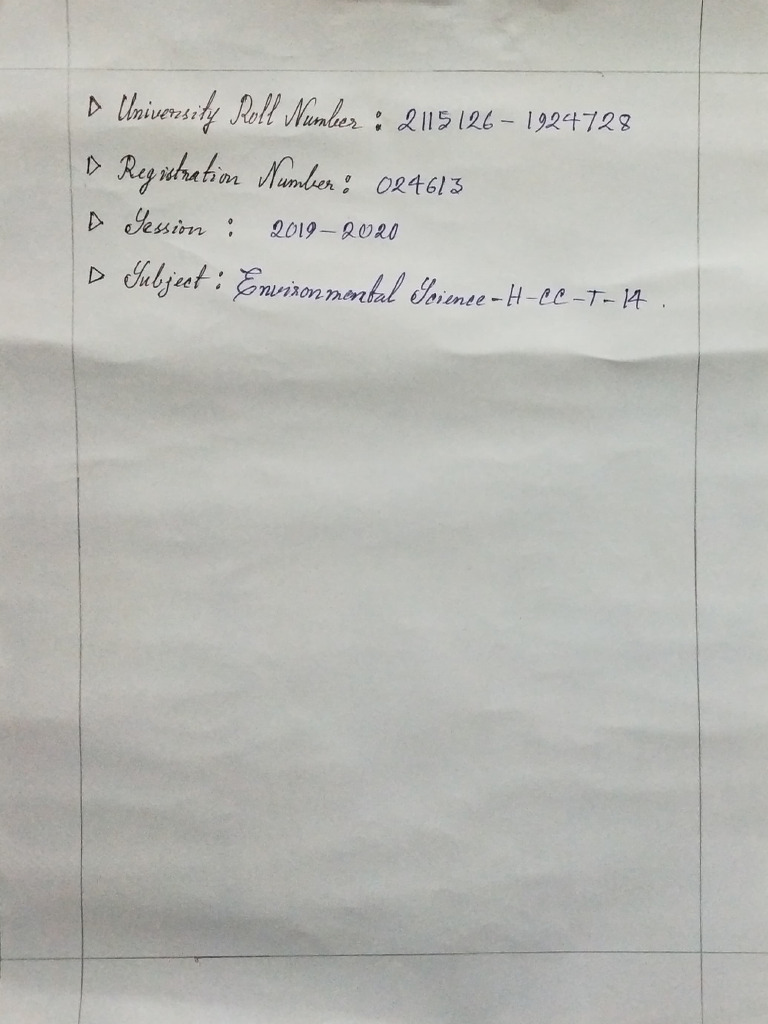 ▷ University Roll Number : 2115126-1924728
▷ Registration Number : 024613
▷ Session : 2019-2020
▷ Subject : Environmental Science-H-CC-T-14.